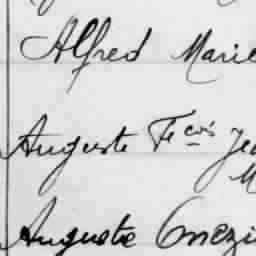 Alfred Marie
Auguste Fcois Je
M
Auguste Onezi